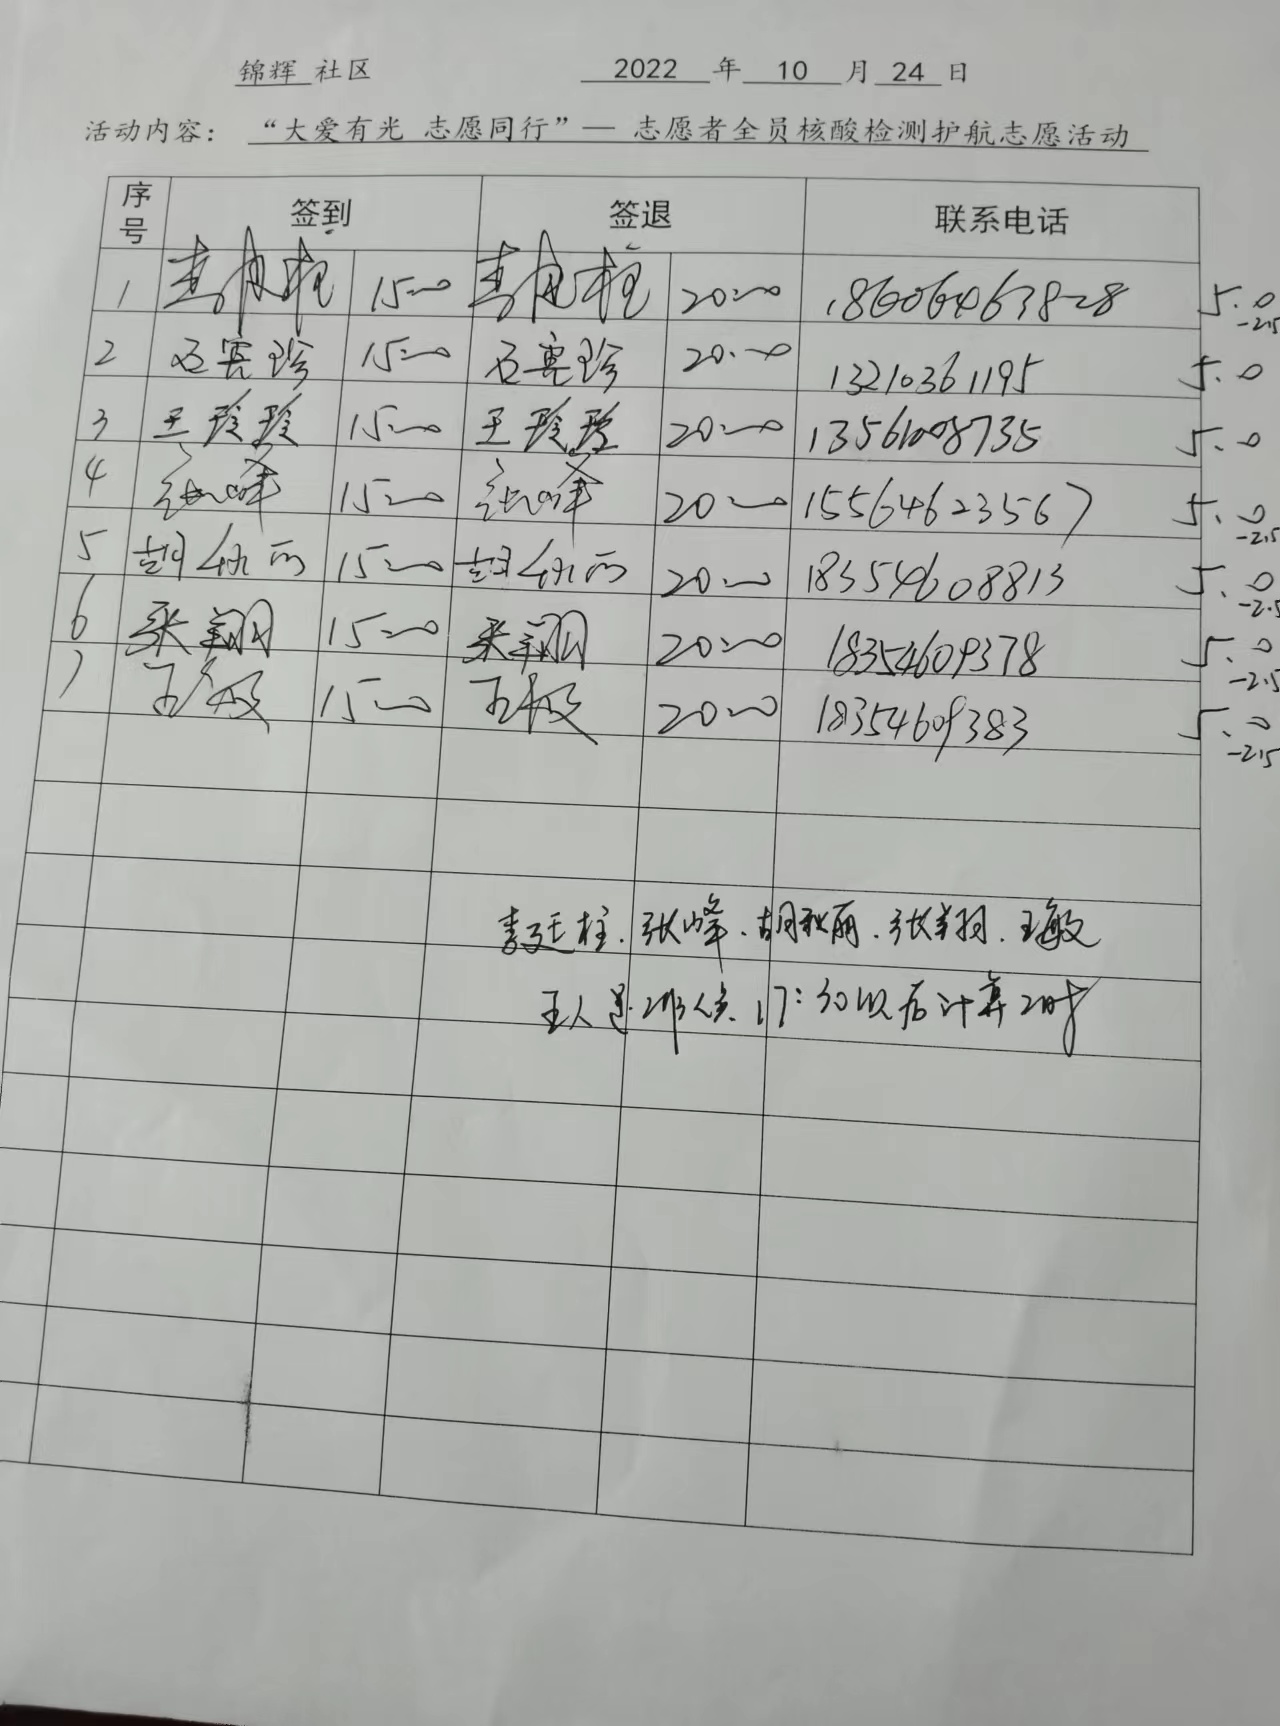 锦辉 社区 2022 年 10 月 24 日
活动内容： “大爱有光 志愿同行”— 志愿者全员核酸检测护航志愿活动
序号 签到 签退 联系电话
1 15:00 20:00 18606463828 5.0
-2.5
2 15:00 20:00 13210361195 5.0
3 王玲玲 15:00 王玲玲 20:00 13561008735 5.0
4 张峰 15:00 张峰 20:00 15564623567 5.0
-2.5
5 胡秋丽 15:00 胡秋丽 20:00 18354608813 5.0
-2.5
6 张翔 15:00 张翔 20:00 18354609378 5.0
-2.5
7 王敏 15:00 王敏 20:00 18354609383 5.0
-2.5
李廷柱、张峰、胡秋丽、张翔、王敏
五人是 17:30以后计算